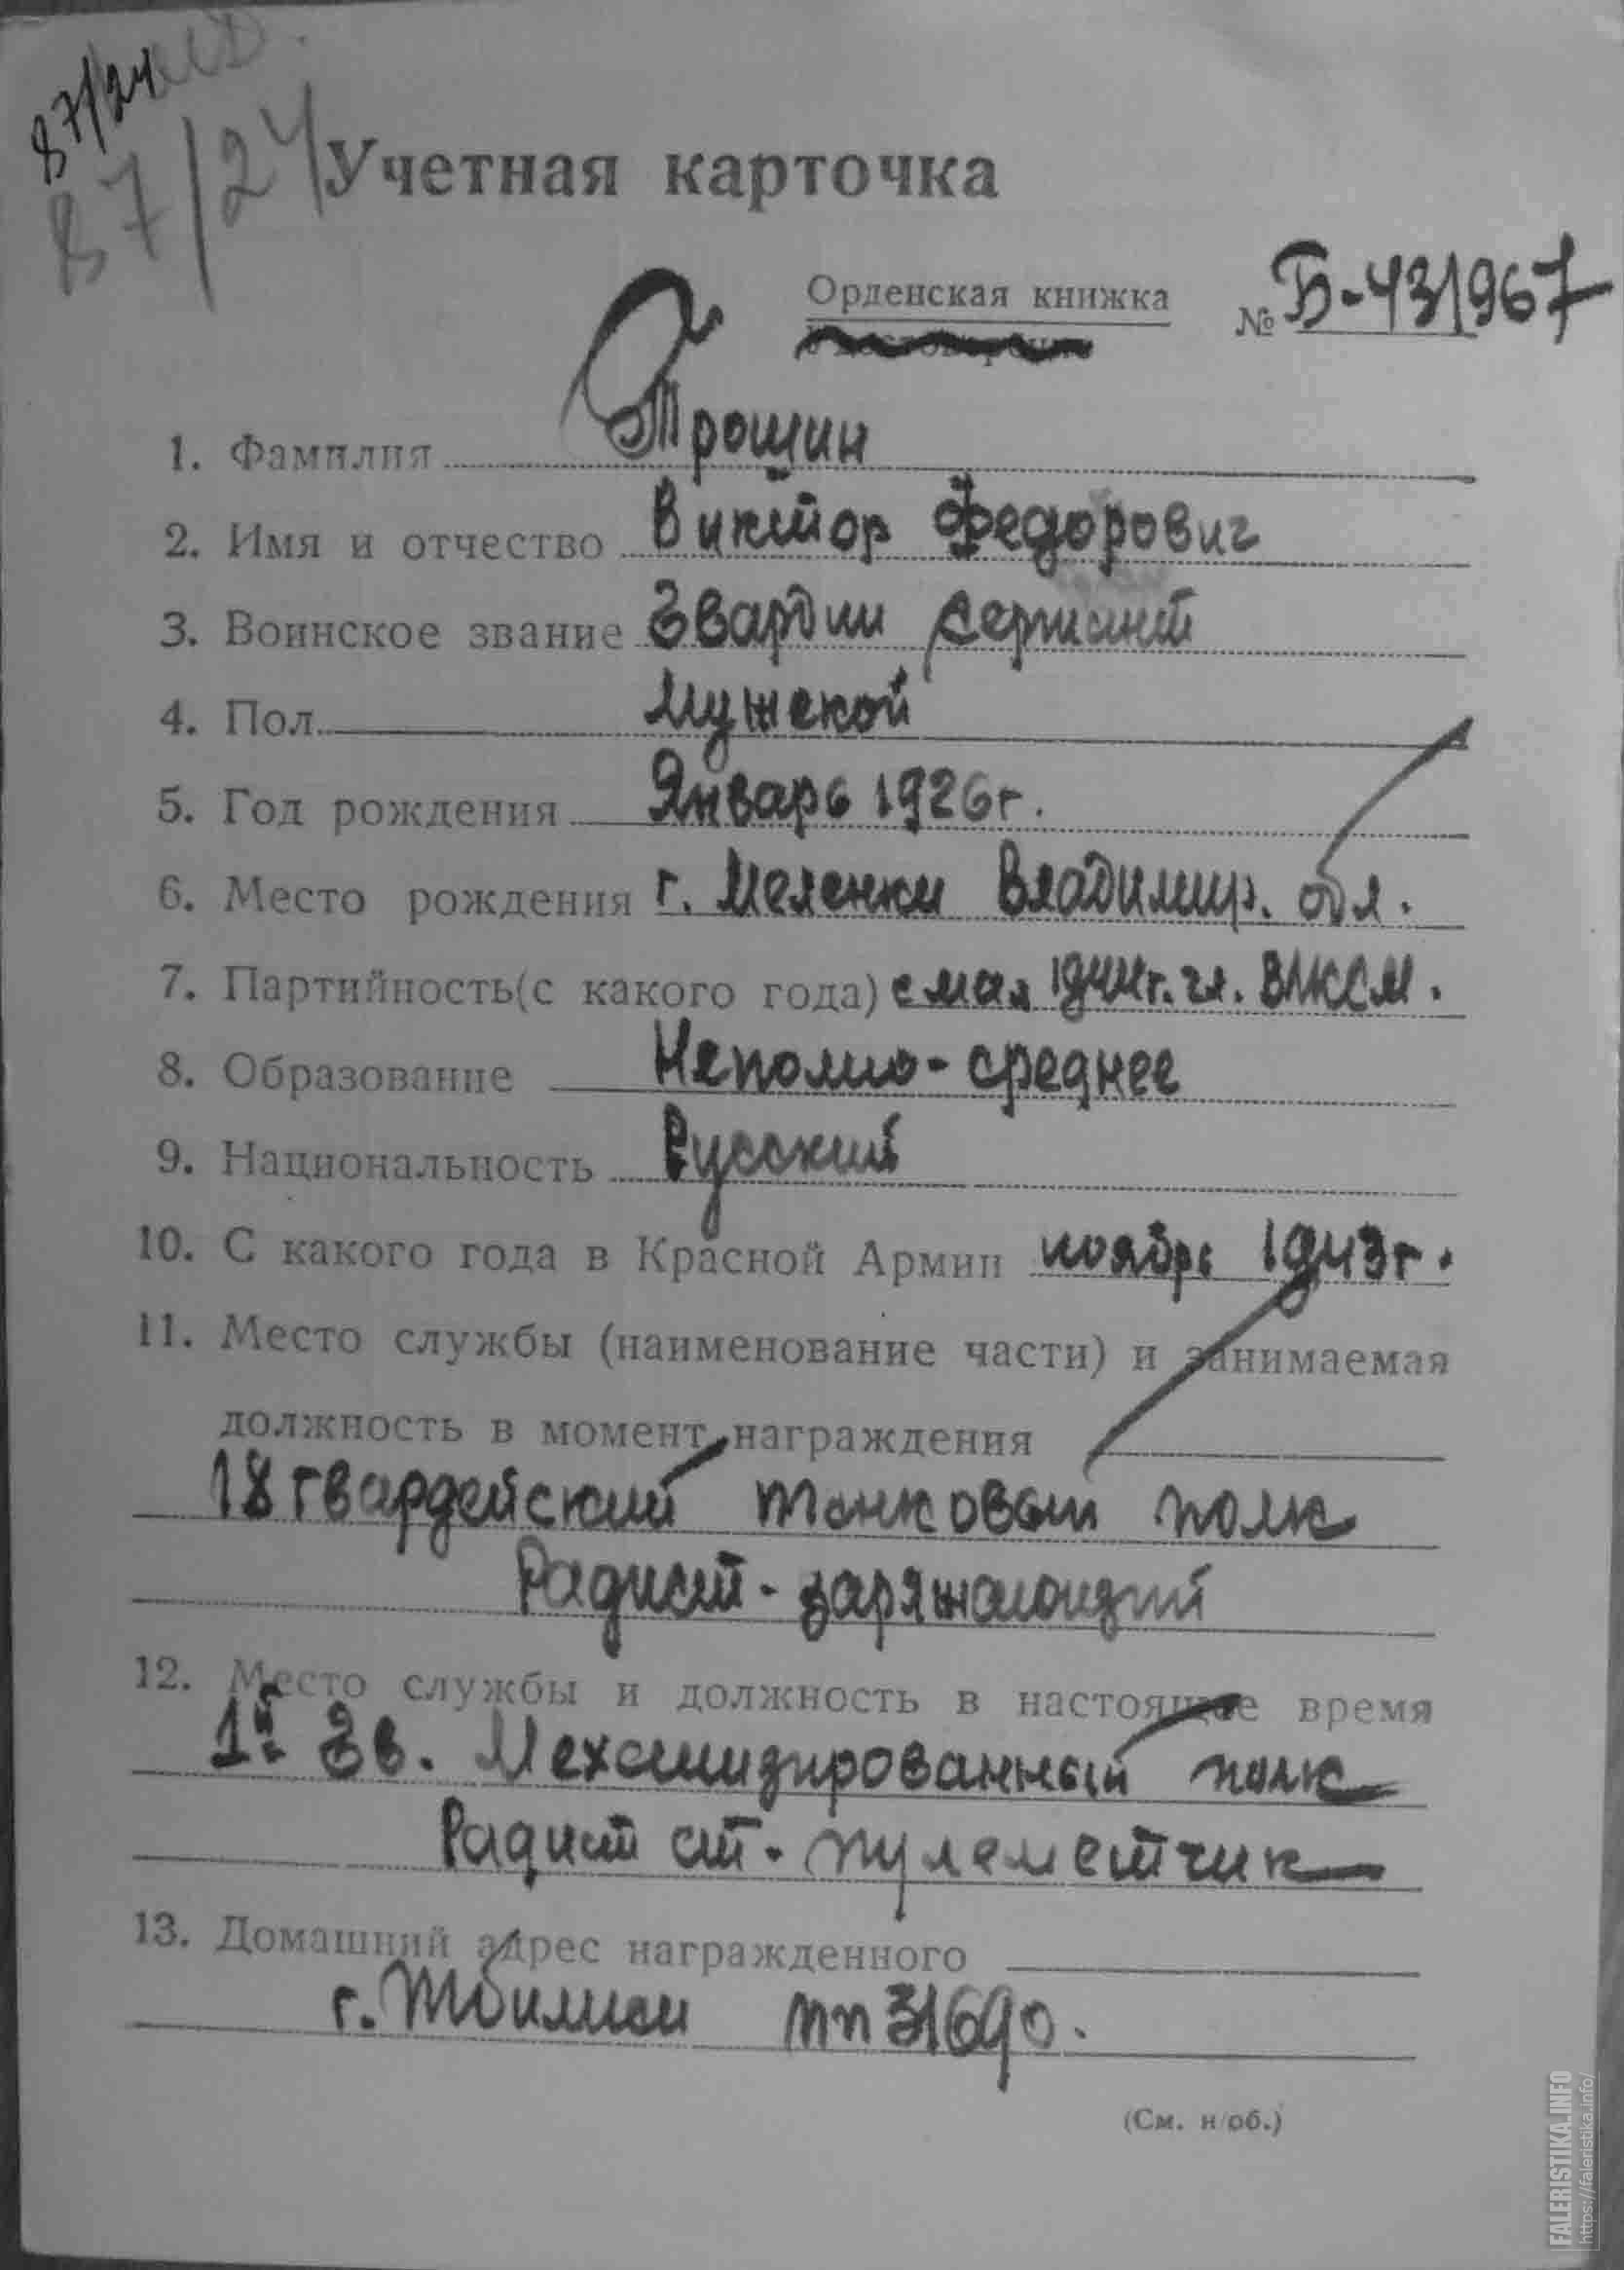 87/24
87/24
Учетная карточка
Орденская книжка № Б-431967
1. Фамилия Трошин
2. Имя и отчество Виктор Федорович
3. Воинское звание Гвардии сержант
4. Пол Мужской
5. Год рождения Январь 1926г.
6. Место рождения г. Меленки Владимир. обл.
7. Партийность(с какого года) с мая 1944г. чл. ВЛКСМ.
8. Образование Неполно-среднее
9. Национальность Русский
10. С какого года в Красной Армии ноябрь 1943г.
11. Место службы (наименование части) и занимаемая
должность в момент награждения
18 гвардейский танковый полк
Радист-заряжающий
12. Место службы и должность в настоящее время
1й Гв. Механизированный полк
Радист ст. пулеметчик
13. Домашний адрес награжденного
г. Тбилиси пп 31690.
(См. н/об.)
FALERISTIKA.INFO
https://faleristika.info/